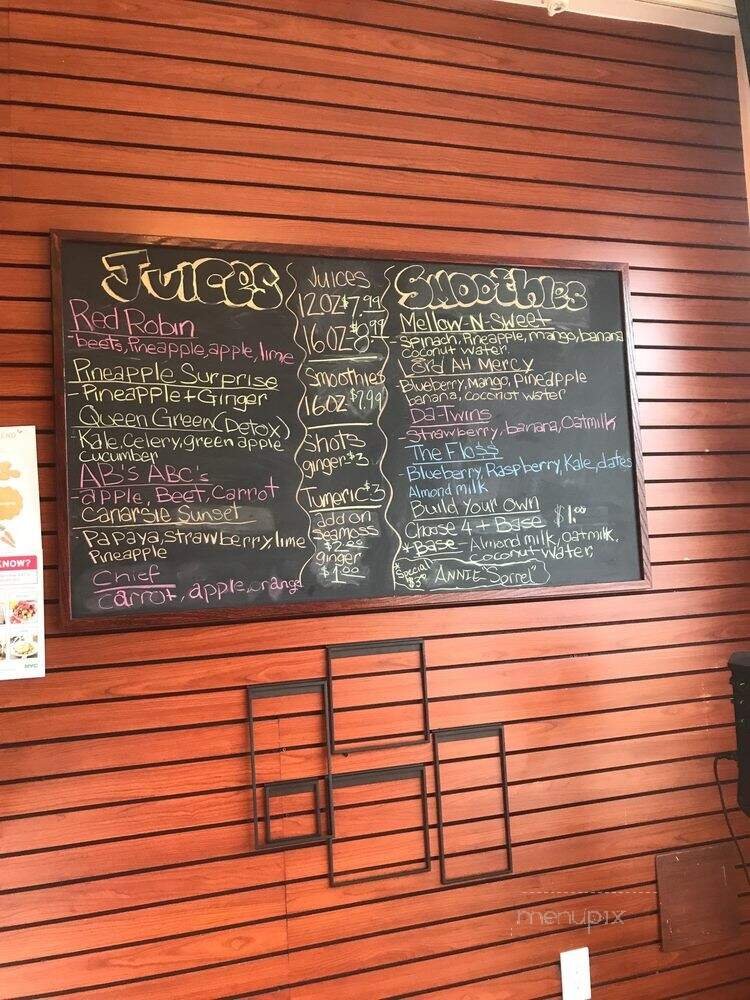 Juices
Red Robin
- beets, Pineapple, apple, lime
Pineapple Surprise
- Pineapple + Ginger
Queen Green (Detox)
- Kale, Celery, green apple
cucumber
AB's ABC's
- apple, Beet, Carrot
Canarsie Sunset
- Papaya, strawberry, lime
Pineapple
Chief
carrot, apple, orange
Juices
12oz $7.99
16oz $8.99
Smoothies
16oz $7.99
Shots
ginger $3
Tumeric $3
add on
seamoss
ginger
$1.00
Smoothies
Mellow-N-Sweet
- Spinach, Pineapple, mango, banana
coconut water
Lord AH Mercy
Blueberry, Mango, Pineapple
banana, coconut water
Da-Twins
- Strawberry, banana, Oatmilk
The Floss
- Blueberry, Raspberry, Kale, dates
Almond milk
Build Your Own
Choose 4 + Base $1.00
*Base - Almond milk, oatmilk,
coconut water
*Special
ANNIE "Sorrel"
KNOW?
NYC
menupix